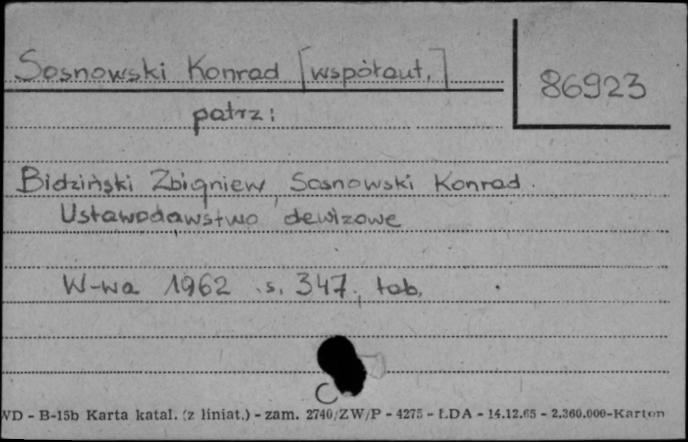 Sosnowski Konrad [współaut.]
86923
patrz:
Bidziński Zbigniew, Sosnowski Konrad.
Ustawodawstwo dewizowe
W-wa 1962 .s. 347, tab.
C
WD - B-15b Karta katal. (z liniat.) - zam. 2740/ZW/P - 4275 - ŁDA - 14.12.65 - 2.360.000-Karton